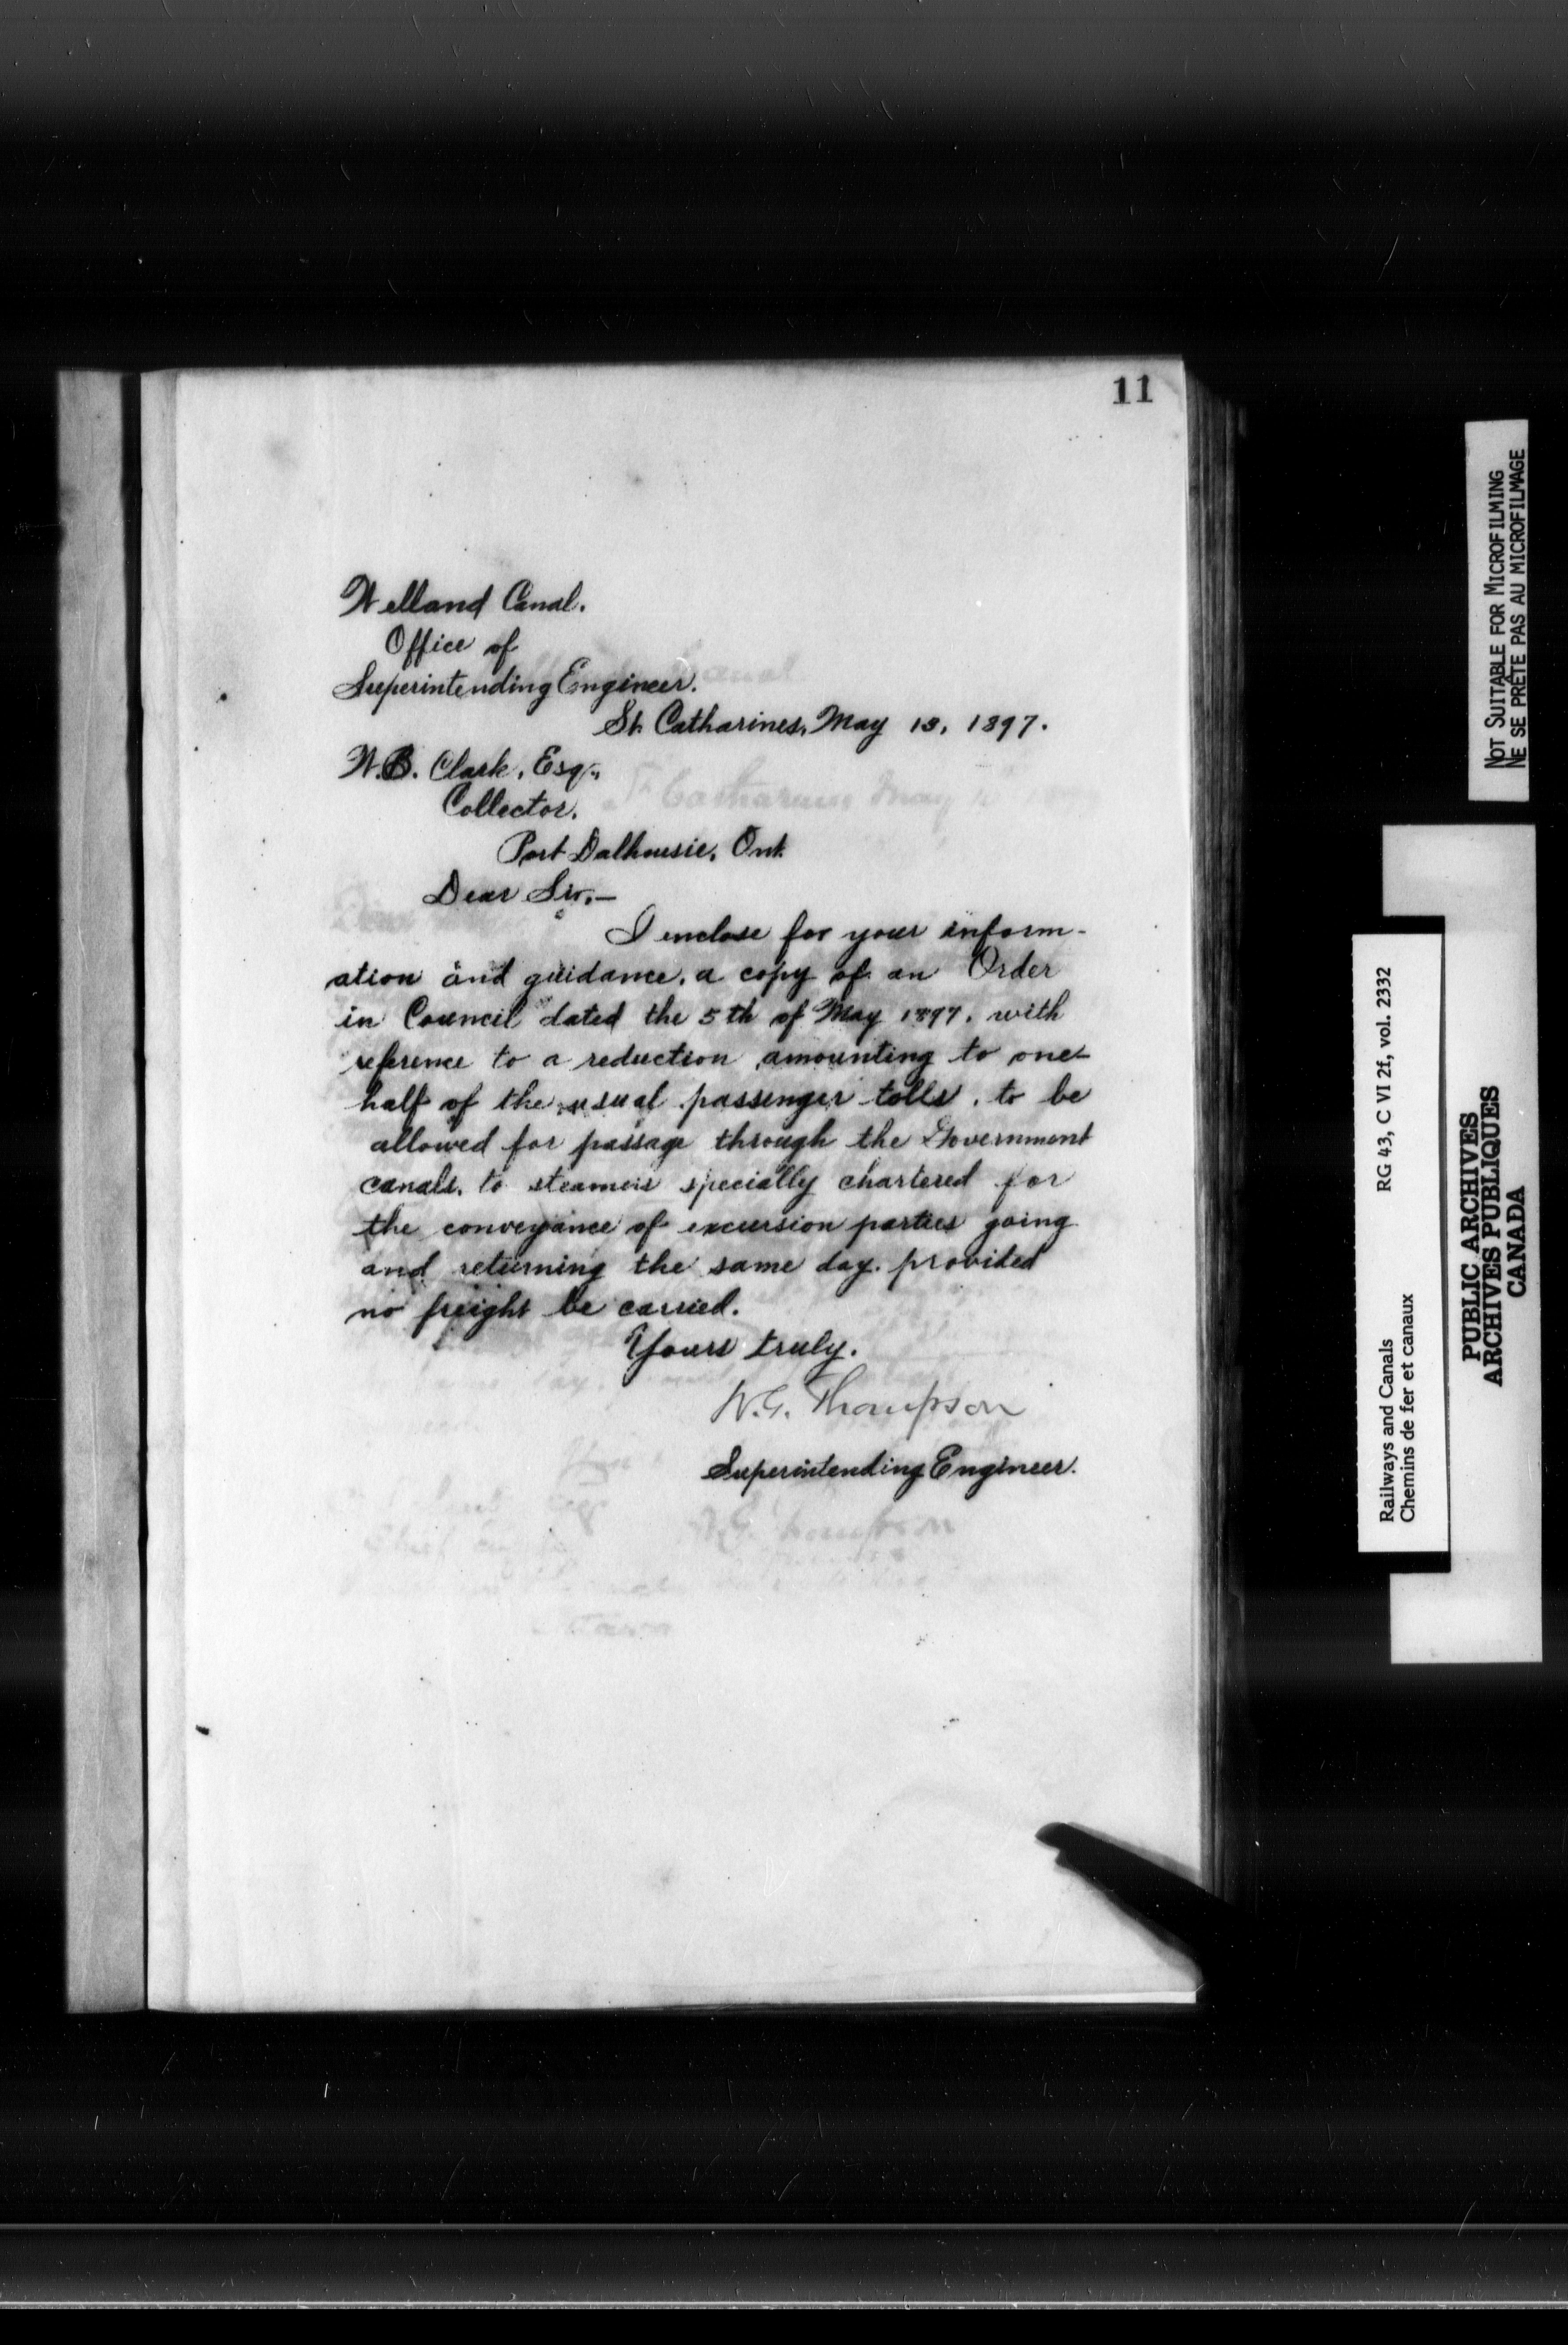 11
Welland Canal.
Office of
Superintending Engineer.
St. Catharines, May 13, 1897.
W.B. Clark, Esq.,
Collector,
Port Dalhousie, Ont.
Dear Sir,—
I enclose for your inform-
ation and guidance, a copy of an Order
in Council dated the 5th of May 1897, with
reference to a reduction, amounting to one-
half of the usual passenger tolls, to be
allowed for passage through the Government
canals, to steamers specially chartered for
the conveyance of excursion parties going
and returning the same day, provided
no freight be carried.
Yours truly.
W.G. Thompson
Superintending Engineer.
NOT SUITABLE FOR MICROFILMING
NE SE PRÊTE PAS AU MICROFILMAGE
Railways and Canals RG 43, C VI 2f, vol. 2332
Chemins de fer et canaux
PUBLIC ARCHIVES
ARCHIVES PUBLIQUES
CANADA